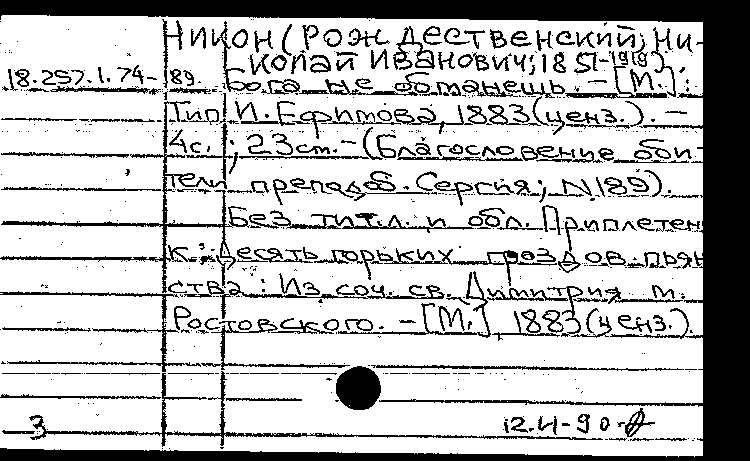 Никон (Рождественский, Ни-
колай Иванович; 1851-1919).
18.257.1.74-89. Бога не обманешь. – [М.]:
Тип И. Ефимова, 1883 (ценз.). –
4с. ; 23 cm. – (Благословение оби-
тели преподоб. Сергия; N 189).
Без тит. л. и обл. Приплетен
к: Десять горьких гроздов пьян
ства : Из соч. св. Димитрия м.
Ростовского. – [М.], 1883 (ценз.).
3